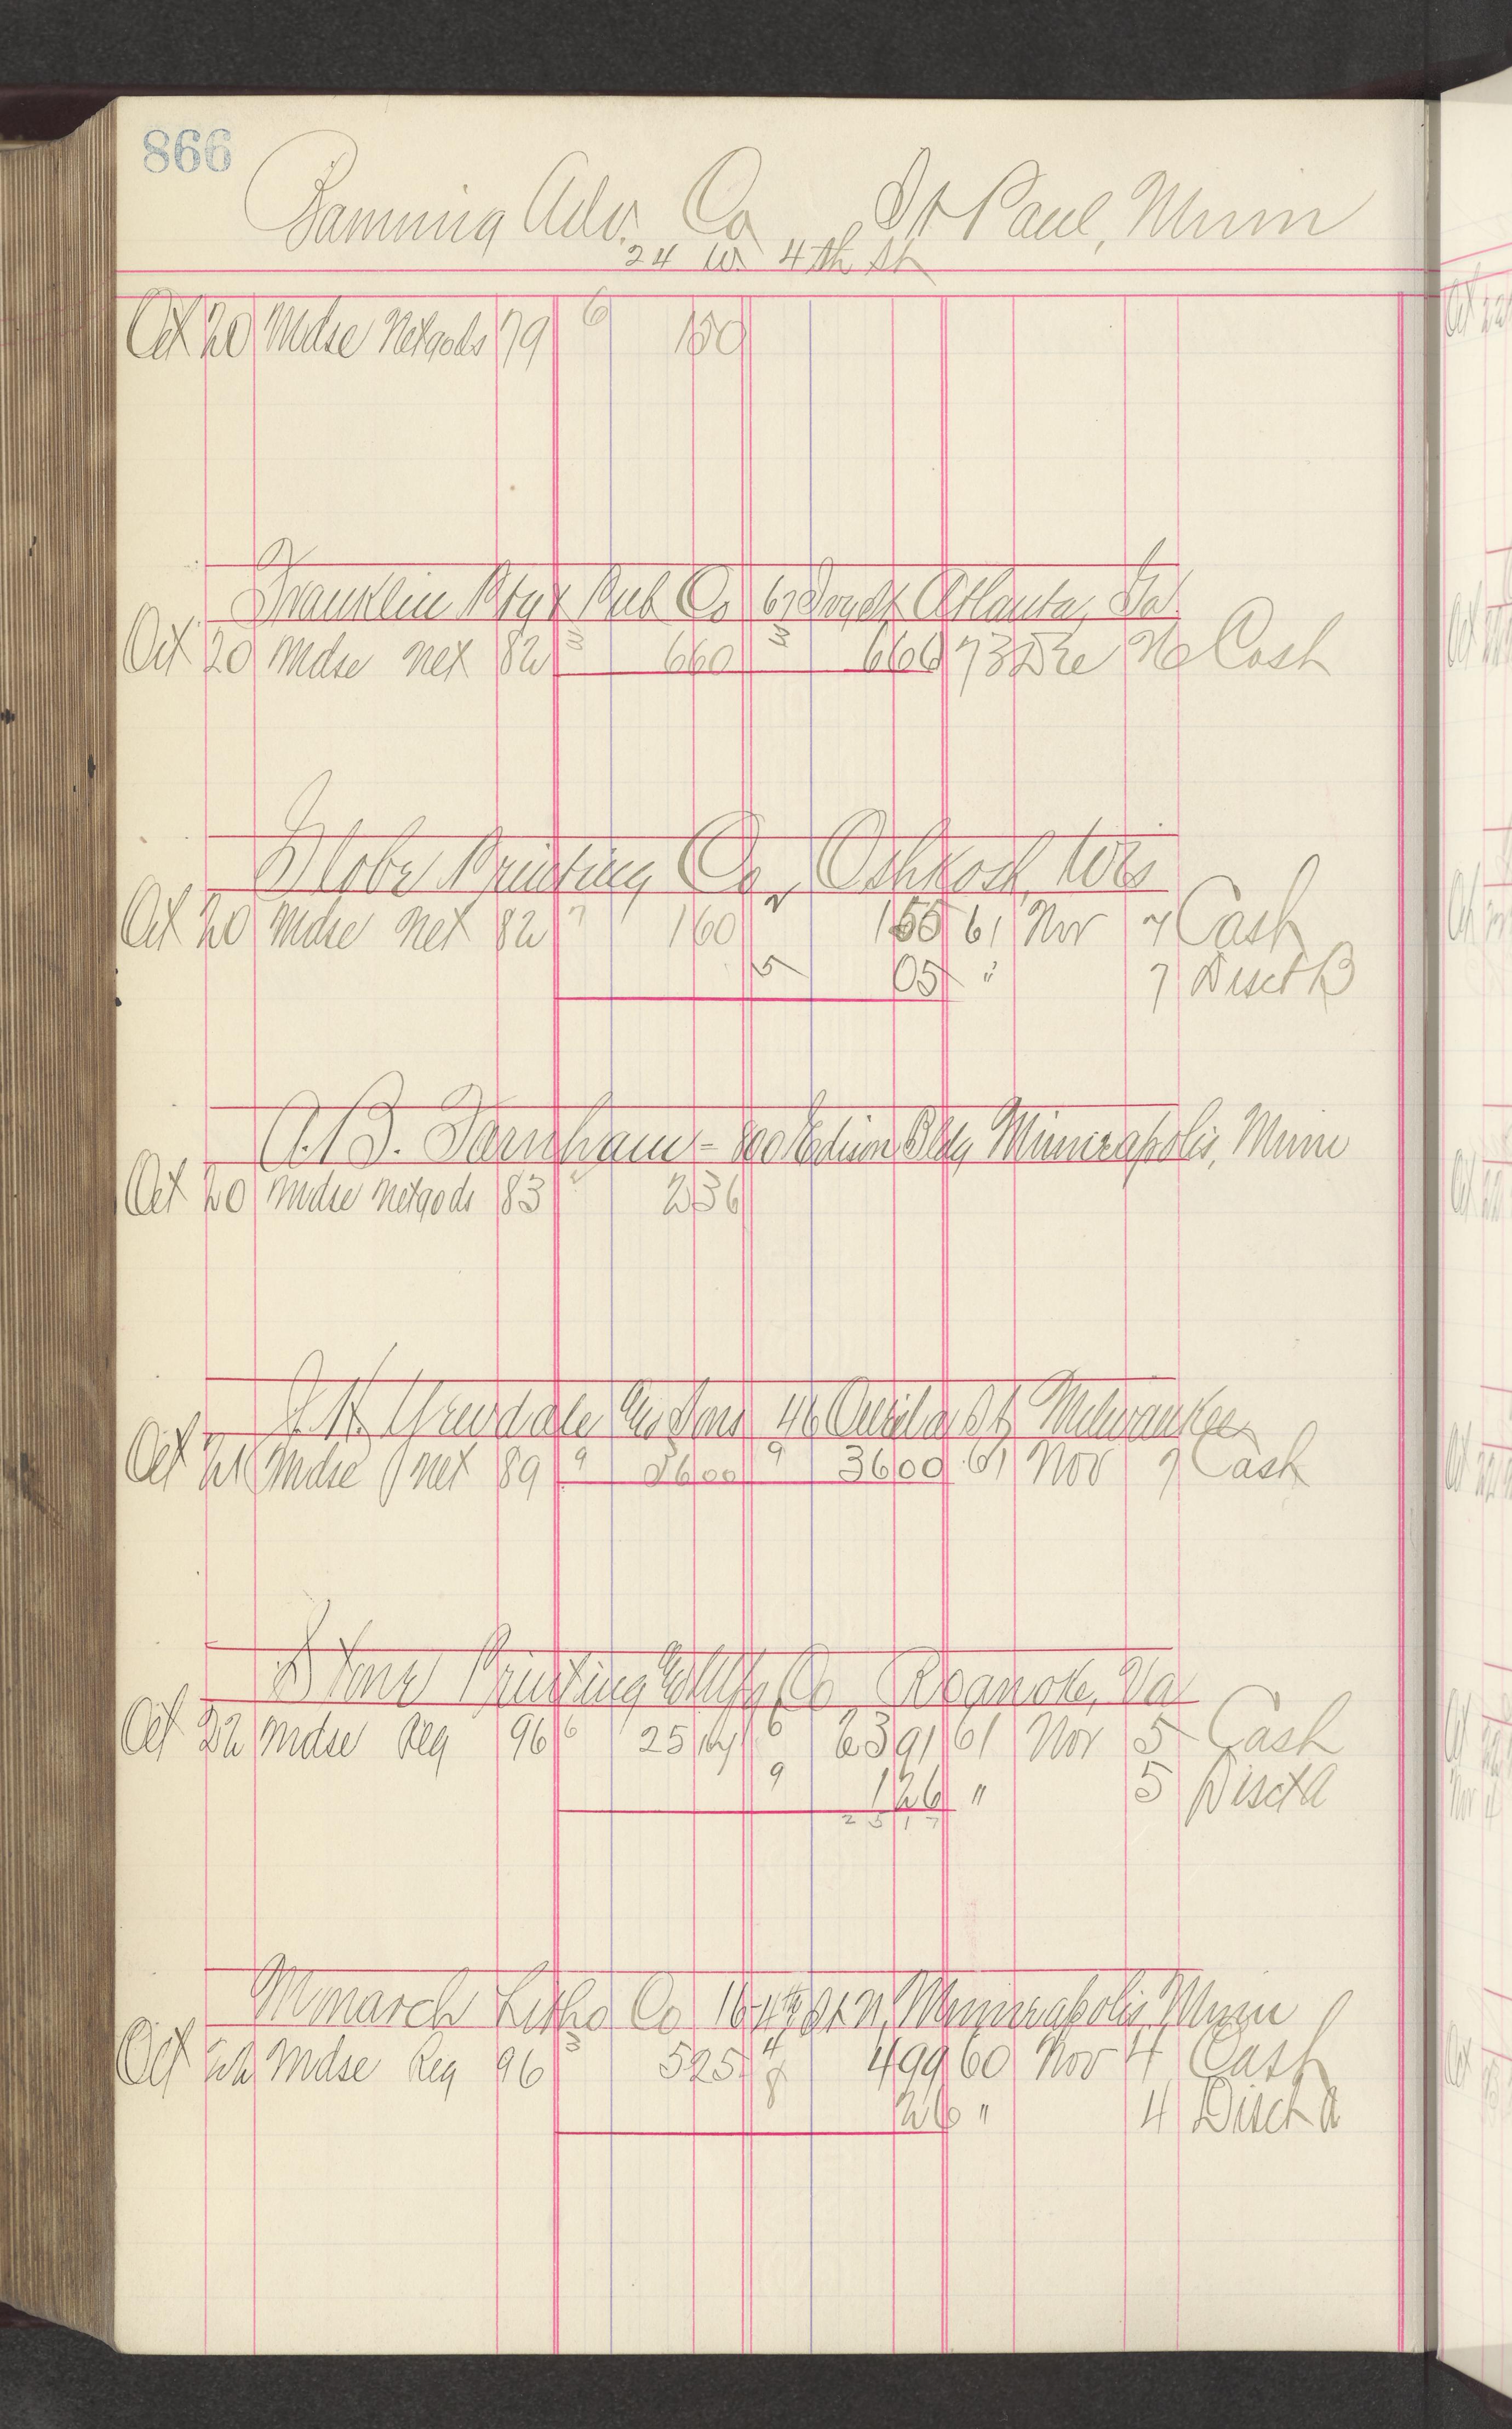 866
Banning Adv. Co St Paul, Minn
24 W. 4th St
Oct 20 Mdse Netgods 79 6 150
Franklin Ptg & Pub Co 65 Ivy St Atlanta, Ga
Oct 20 Mdse net 82 3 660 3 660 73 Dec 26 Cash
Globe Printing Co, Oshkosh, Wis
Oct 20 Mdse Net 82 7 160 2 155 61 Nov 7 Cash
5 05 " 7 Disct B
A.B. Farnham - 800 Bldg Minneapolis, Minn
Oct 20 Mdse Netgods 83 236
J.H. Yewdale & Sons St, Milwaukee
Oct 21 Mdse net 89 9 3600 9 3600 61 Nov 7 Cash
Stone Printing & Mfg Co Roanoke, Va
Oct 22 Mdse Reg 96 6 25 17 6 23 91 61 Nov 5 Cash
9 1 26 " 5 Disct A
2 5 1 7
Monarch Litho Co 16 4th St N, Minneapolis, Minn
Oct 22 Mdse Reg 96 3 525 4 499 60 Nov 4 Cash
8 26 " 4 Disct A